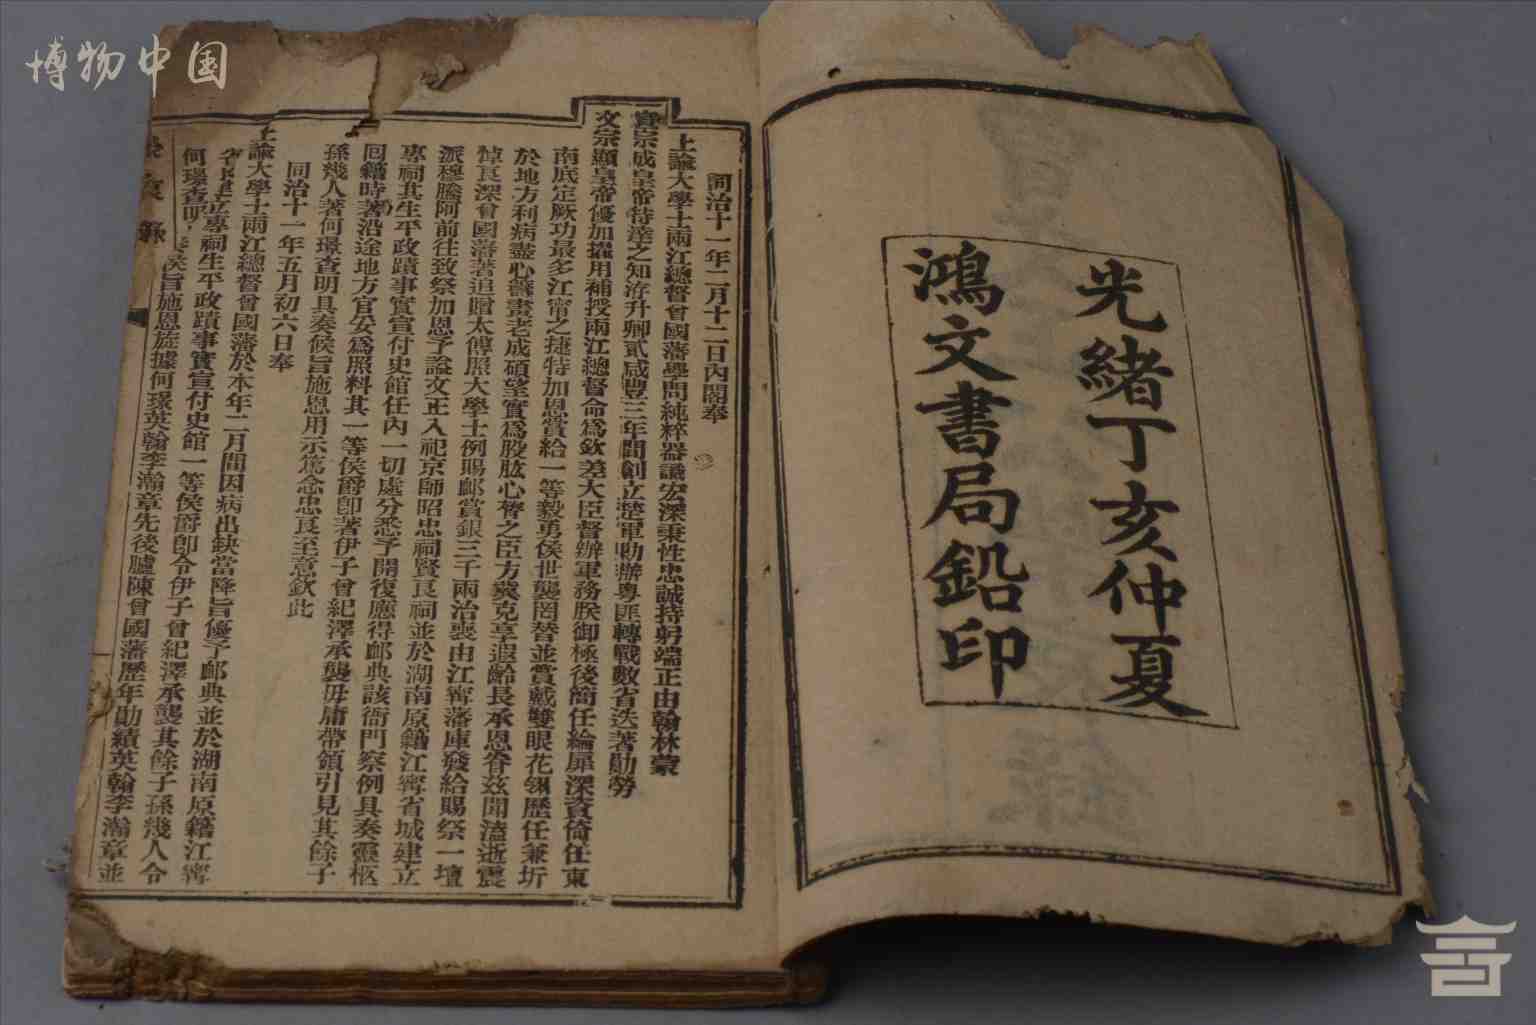 博物中国
光緒丁亥仲夏
鴻文書局鉛印
同治十一年二月十二日內閣奉
上諭大學士兩江總督曾國藩學問純粹器識宏深秉性忠誠持躬端正由翰林蒙
宣宗成皇帝特達之知洊升卿貳咸豐三年間創立楚軍勦辦粵匪轉戰數省迭著勛勞
文宗顯皇帝優加擢用補授兩江總督命爲欽差大臣督辦軍務朕御極後簡任綸扉深資倚任東
南底定厥功最多江甯之捷特加恩賞給一等毅勇侯世襲罔替並賞戴雙眼花翎歷任兼圻
於地方利病盡心籌畫老成碩望實爲股肱心膂之臣方冀克享遐齡長承恩眷茲聞溘逝震
悼良深曾國藩著追贈太傅照大學士例賜卹賞銀三千兩治喪由江甯藩庫發給賜祭一壇
派穆騰阿前往致祭加恩予諡文正入祀京師昭忠祠賢良祠並於湖南原籍江甯省城建立
專祠其生平政蹟事實宣付史館任內一切處分悉予開復應得卹典該衙門察例具奏靈柩
回籍時著沿途地方官妥爲照料其一等侯爵卽著伊子曾紀澤承襲毋庸帶領引見其餘子
孫幾人著何璟查明具奏候旨施恩用示篤念忠良至意欽此
同治十一年五月初六日奉
上諭大學士兩江總督曾國藩於本年二月間因病出缺當降旨優予卹典並於湖南原籍江甯
省建立專祠生平政蹟事實宣付史館一等侯爵卽令伊子曾紀澤承襲其餘子孫幾人令
何璟查明候旨施恩旋據何璟英翰李瀚章先後臚陳曾國藩歷年勛績英翰李瀚章並
哀